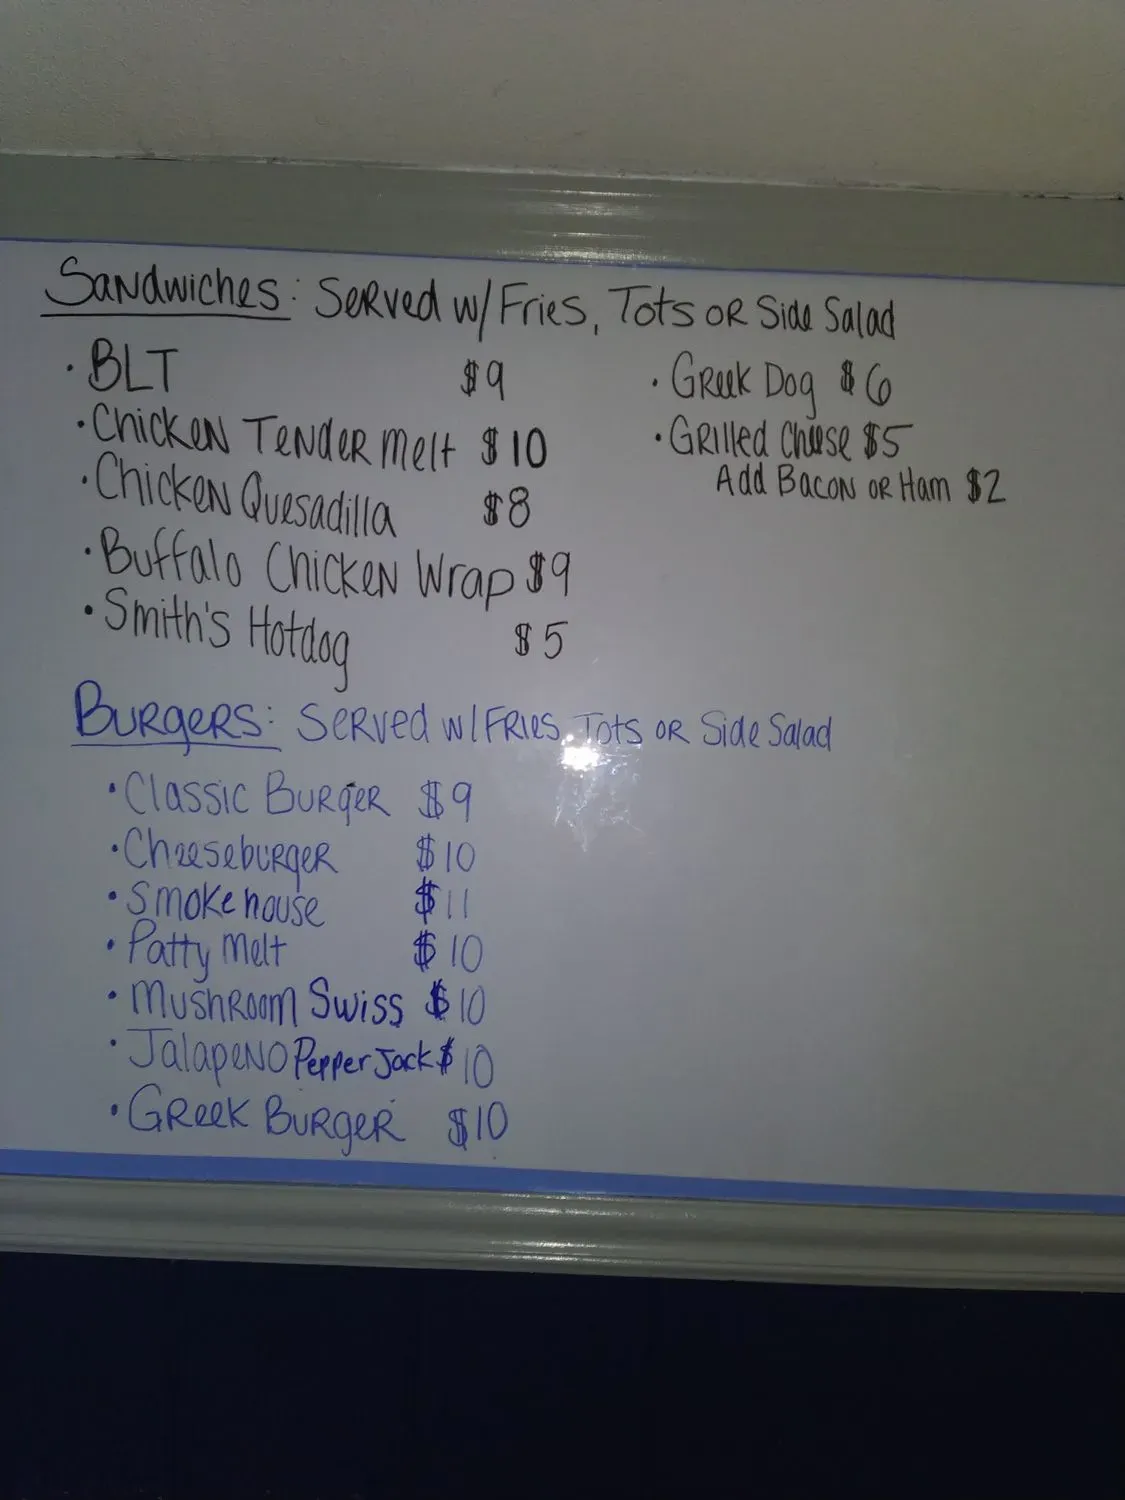 Sandwiches: Served w/ Fries, Tots or Side Salad
· BLT $9
· Chicken Tender Melt $10
· Chicken Quesadilla $8
· Buffalo Chicken Wrap $9
· Smith's Hotdog $5
· Greek Dog $6
· Grilled Cheese $5
Add Bacon or Ham $2
Burgers: Served w/ Fries, Tots or Side Salad
· Classic Burger $9
· Cheeseburger $10
· Smokehouse $11
· Patty Melt $10
· Mushroom Swiss $10
· Jalapeno Pepper Jack $10
· Greek Burger $10